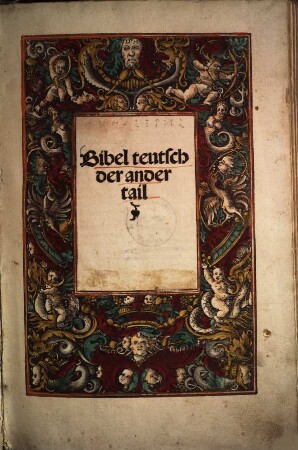 Bibel teutsch
der ander
tail